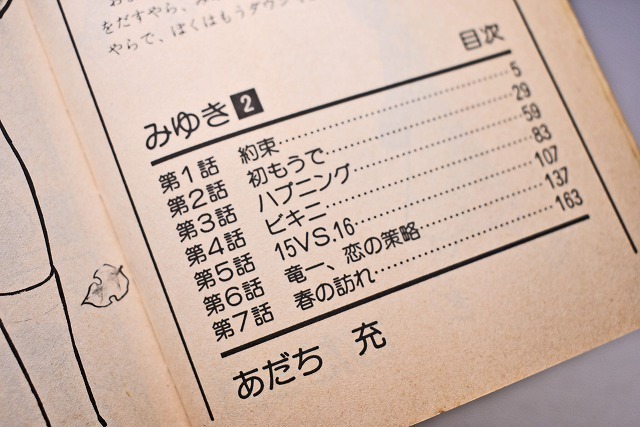 をだすやら、
やらで、ぼくはもうダウン
目次
みゆき 2
第1話 約束……………5
第2話 初もうで……………29
第3話 ハプニング……………59
第4話 ビキニ……………83
第5話 15VS.16……………107
第6話 竜一、恋の策略……………137
第7話 春の訪れ……………163
あだち 充